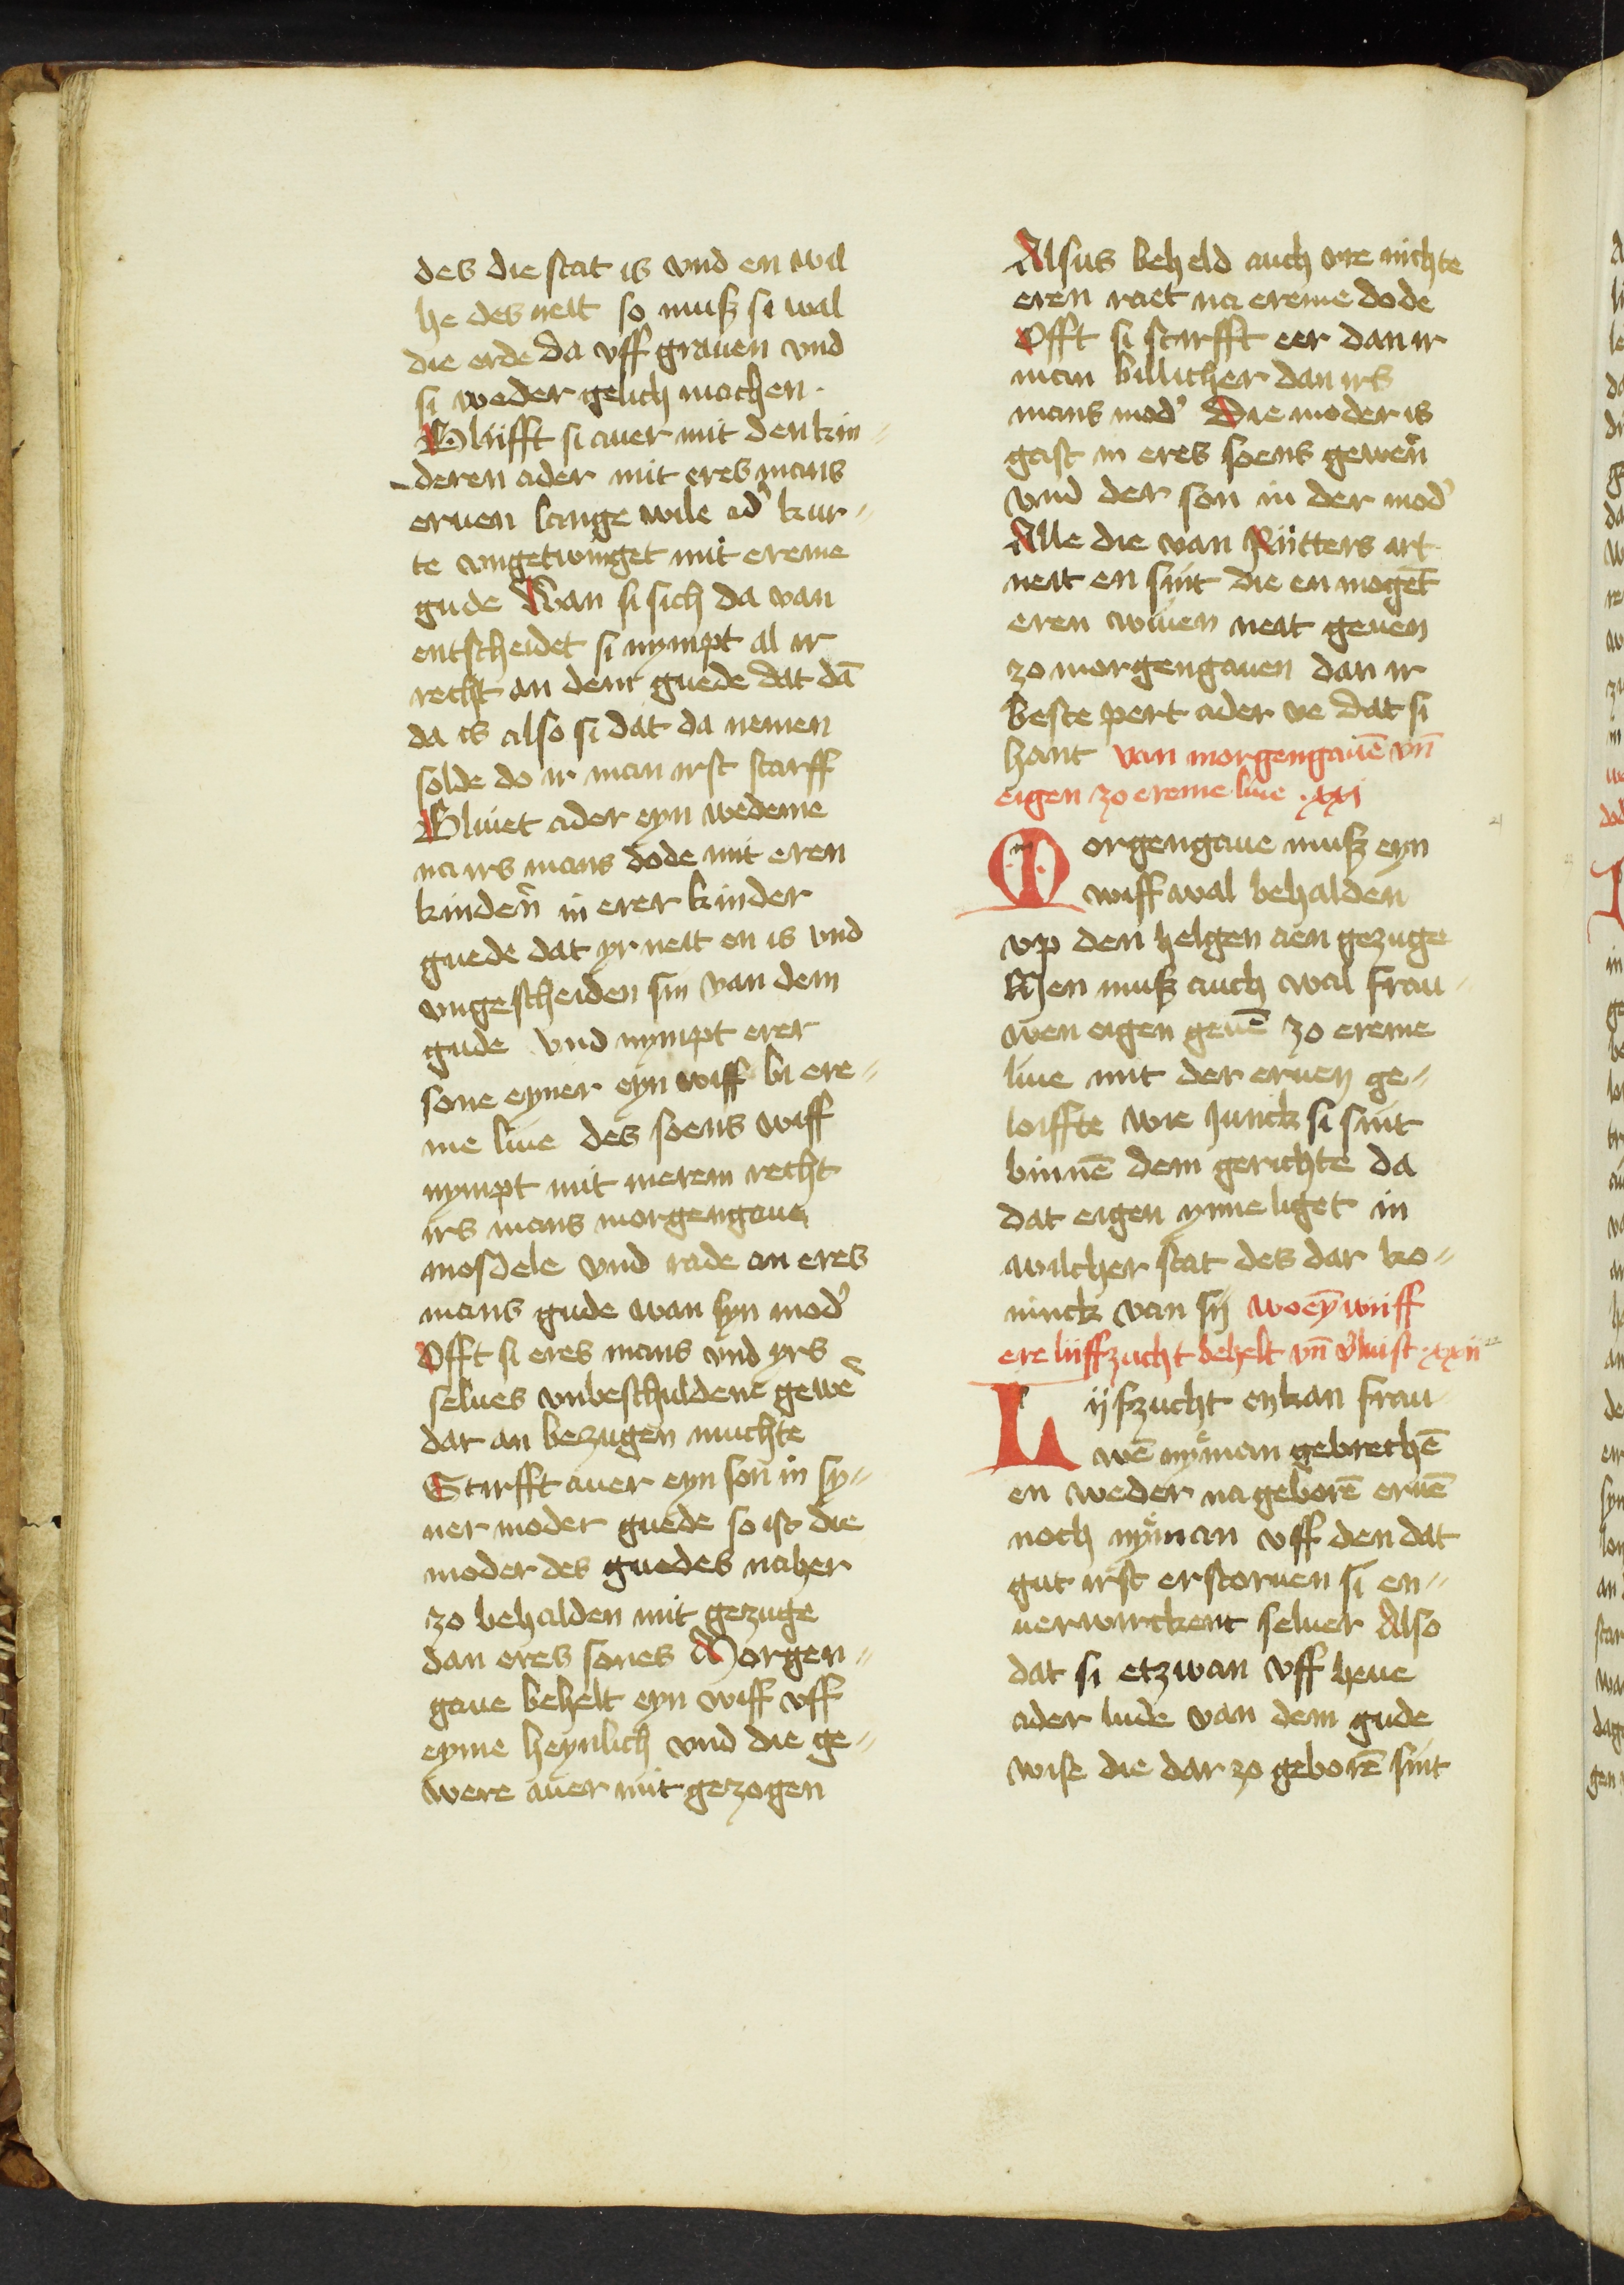 des die stat is vnd en wil
he des neit so muß si wal
die erde da vff grauen vnd
si weder gelich machen.
Bliifft si auer mit den kin„
deren ader mit eres mans
eruen lange wile ad' kur„
te vngetwinget mit ereme
gude Wan si sich da van
entscheidet si nympt al ir
recht an dem guede dat dā
da is also si dat da nemen
solde do ir man irst starff
Bliuet ader eyn wedeme
na irs mans dode mit eren
kinden̄ in erer kinder
guede dat yr neit en is vnd
vngescheiden sin van dem
gude vnd nympt erer
sone eyner eyn wiff bi ere„
me liue des soens wiff
nympt mit merem recht
irs mans morgengaue
mosdele vnd rade an eres
mans gude wan syn mod'
Offt si eres mans vnd yrs
selues vnbeschuldene gewē
dar an bezugen muchte
Stirfft auer eyn son in sy„
ner moder guede so ist die
moder des guedes naher
zo behalden mit gezuge
dan eres sones Morgen„
gaue behelt eyn wiff vff
eyme heynlich vnd die ge„
were auer mit gezogen
Alsus beheld auch vre nichte
eren raet na ereme dode
Offt si stirfft eer dan ir
man billicher dan irs
mans mod' Die moder is
gast in eres soens gewen̄
vnd der son in der mod'
Alle die van Ritters art
neit en sint die en mogēt
eren wiuen neit geuen
zo morgengauen dan ir
beste pert ader ve dat si
hant van morgengauē vn̄
eigen zo ereme liue .xxi
Morgengaue muß eyn
wiff wal behalden
vp den helgen aen gezuge
Men muß auch wal frau„
wen eigen geuē zo ereme
liue mit der eruen ge„
loiffte wie junck si sint
binnē dem gerichte da
dat eigen ynne liget in
wilcher stat des dar ko„
ninck van sij wo eȳ wiiff
ere liiffzucht behelt vn̄ v'luist .xxii
Lijfzucht enkan frau
wē nyman gebrechē
en weder na geborē eruē
noch nyman vff den dat
gut irst erstoruen si en„
uerwirckent seluer Also
dat si etzwan vff heue
ader lude van dem gude
wise die dar zo geborē sint